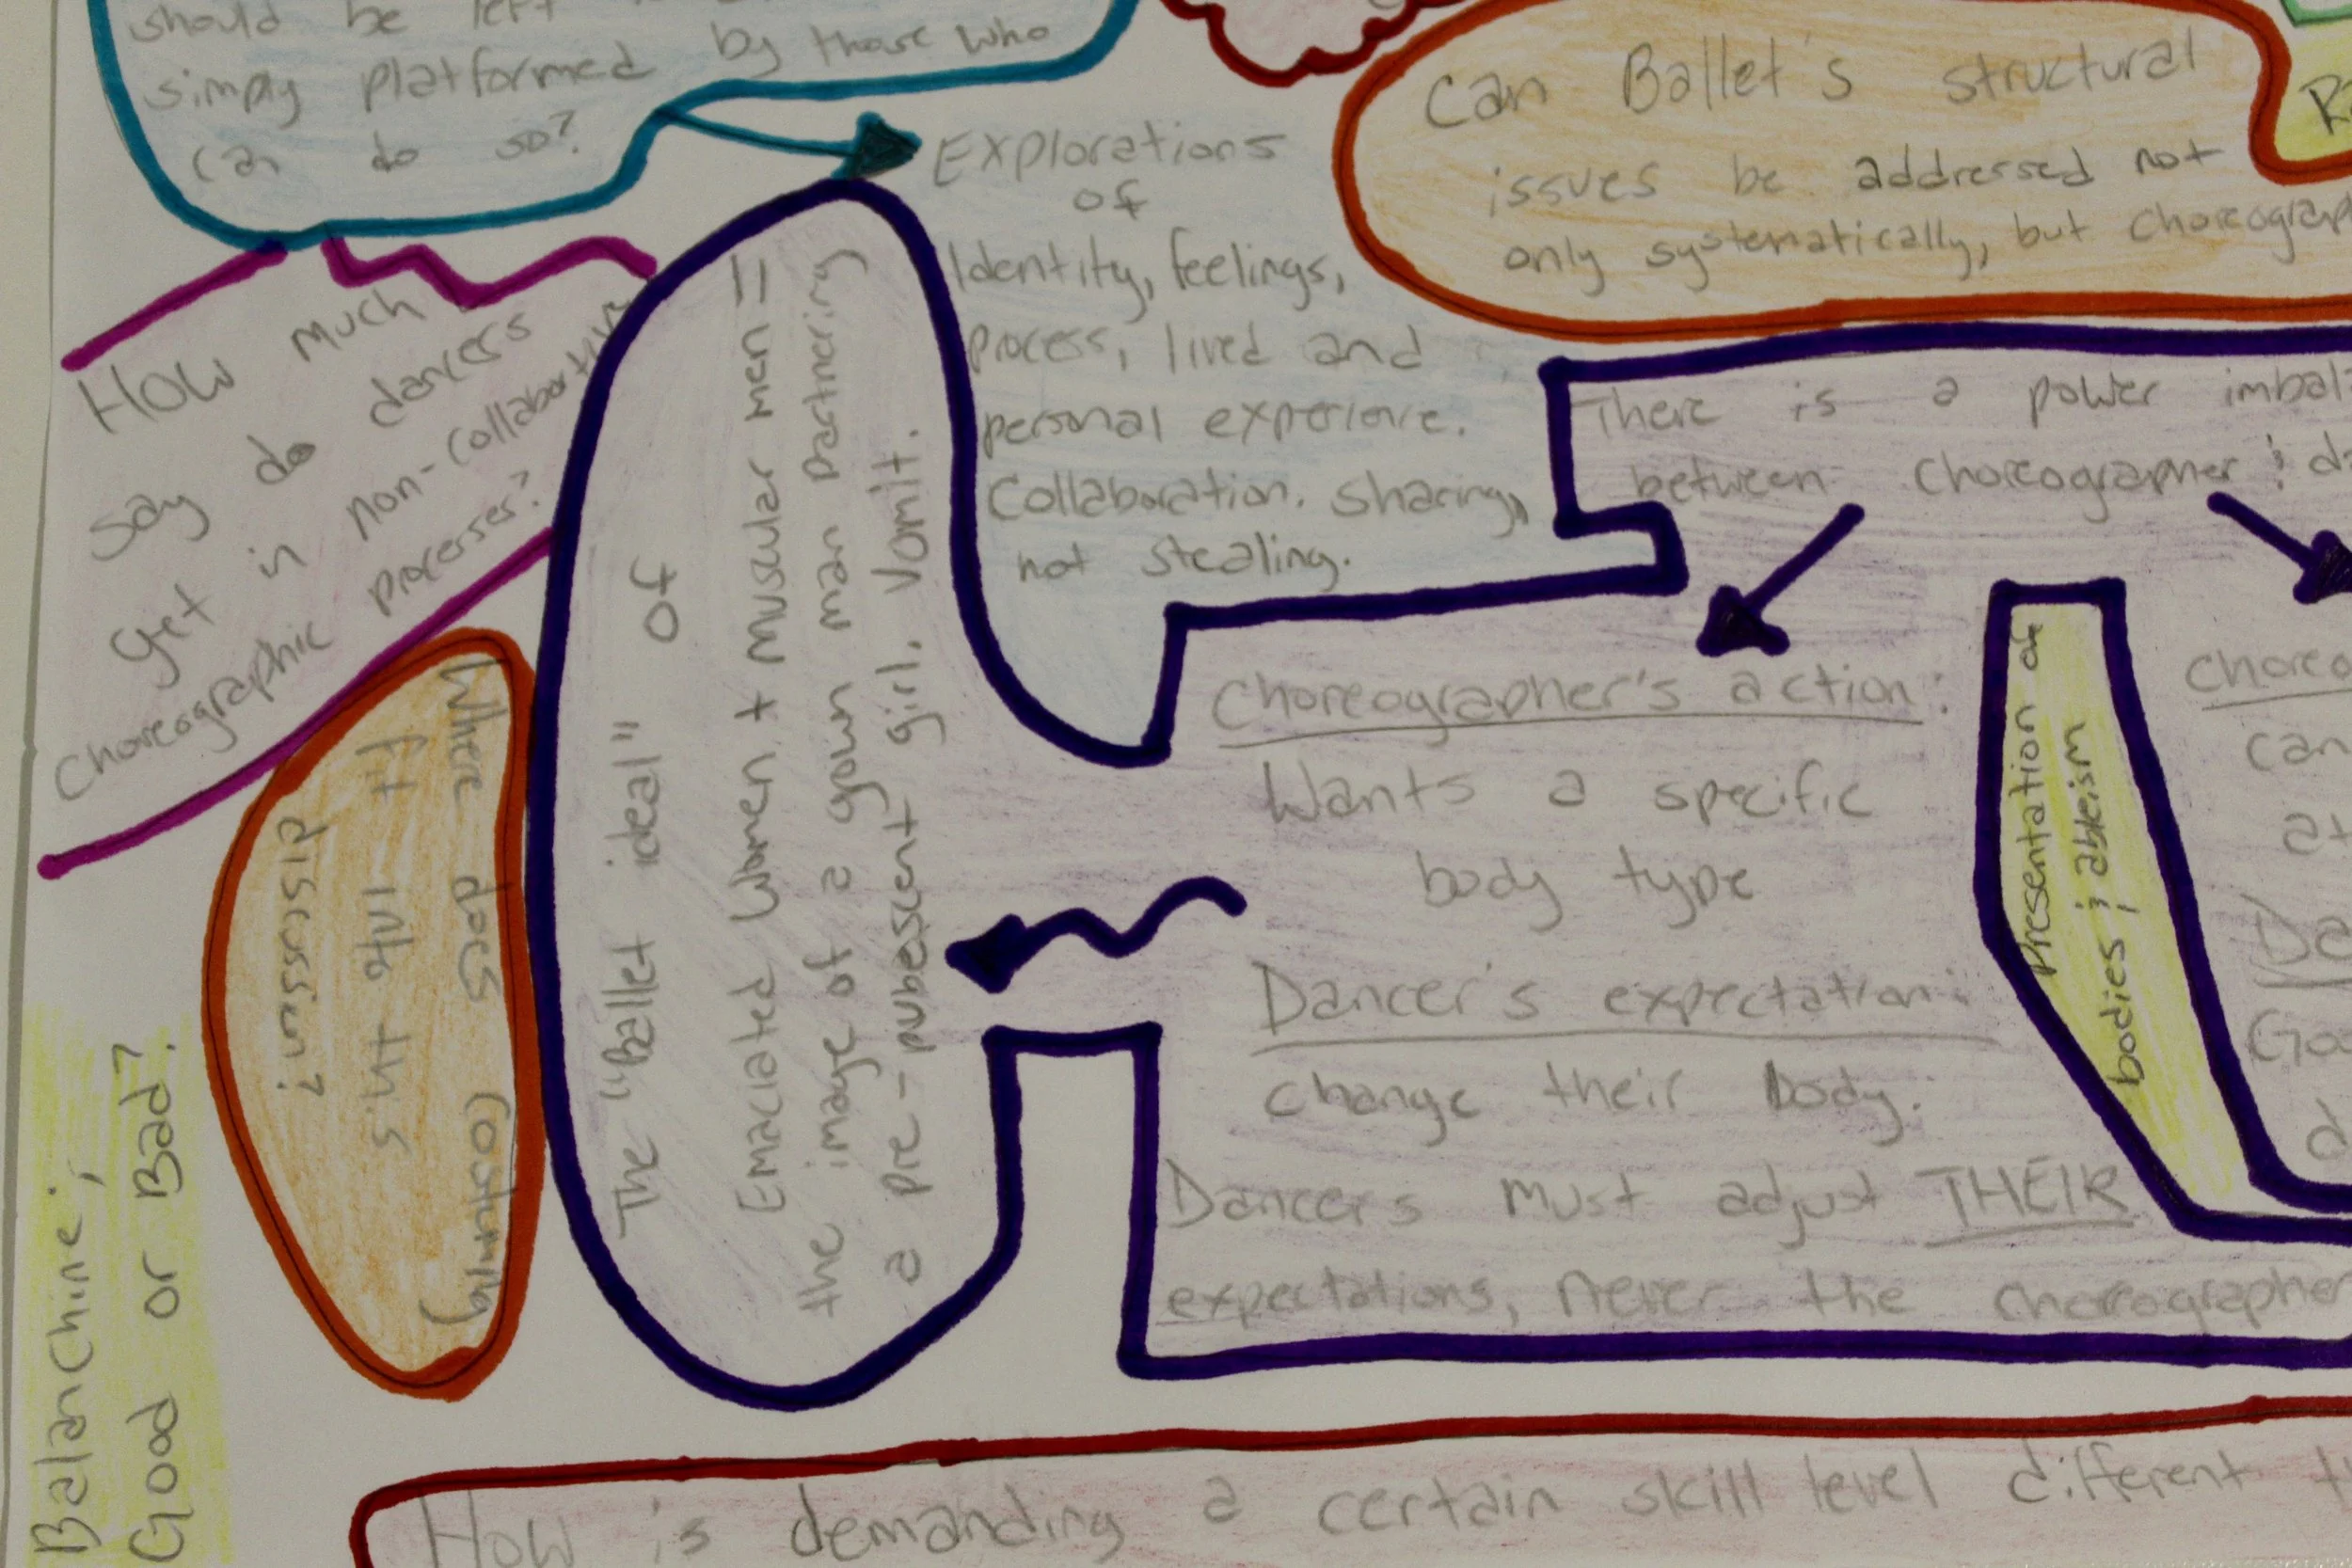 should be left
simply platformed by those who
can do so?
Explorations
of
Identity, feelings,
process, lived and
personal experience.
Collaboration. Sharing,
not stealing.
Can Ballet's structural
issues be addressed not
only systematically, but choreograp
R
How much
say do dancers
get in non-collaborative
Choreographic processes?
There is a power imbal
between choreographer & da
Choreographer's action:
Wants a specific
body type
Dancer's expectation:
change their body.
Dancers must adjust THEIR
expectations, never the choreographer
The "Ballet ideal" of
Emaciated Women + muscular men =
the image of a grown man partnering
a pre-pubescent girl. Vomit.
Where does costuming
fit into this
discussion?
Presentation of
bodies & ableism
Choreo
can
at
Da
Goo
d
Balanchine;
Good or Bad?
How is demanding a certain skill level different t